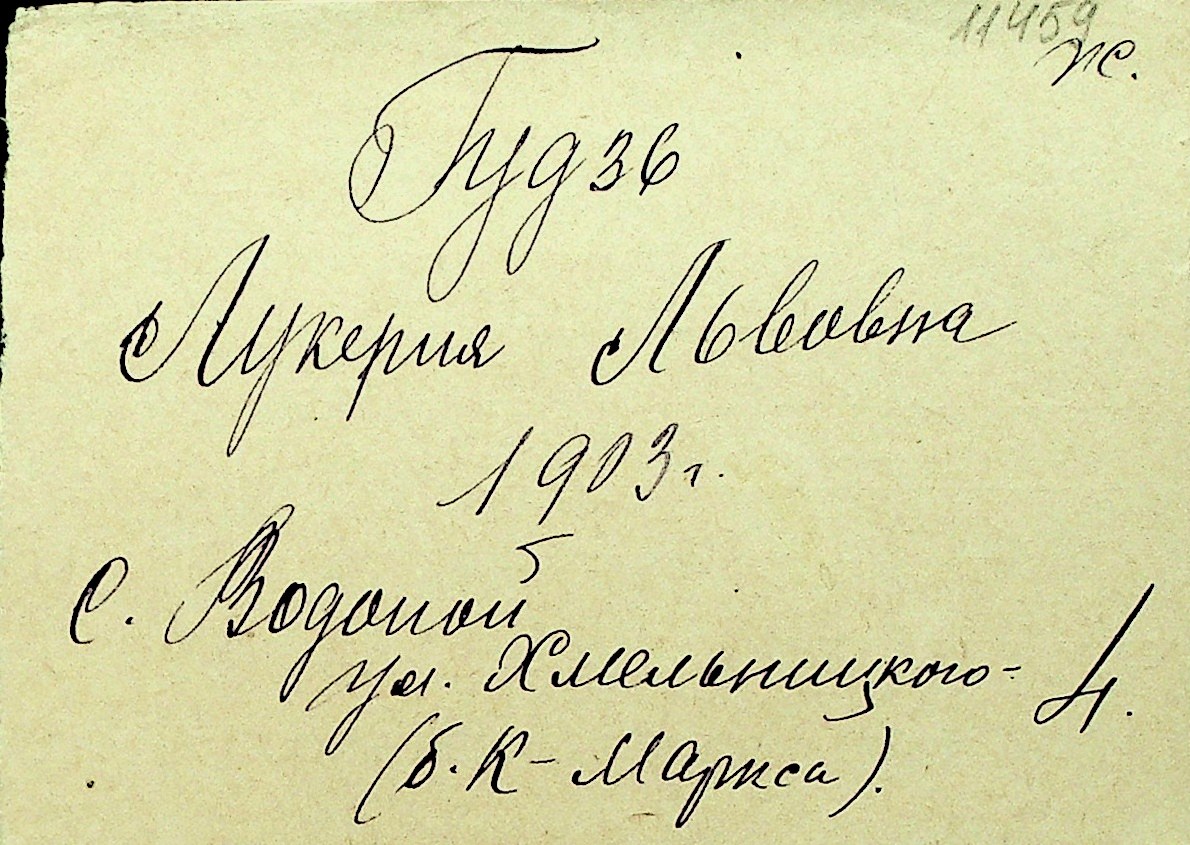 11459
ж.
Гудзь
Лукерия Львовна
1903 г.
с. Водопой
ул. Хмельницкого - 4.
(б. К - Маркса).